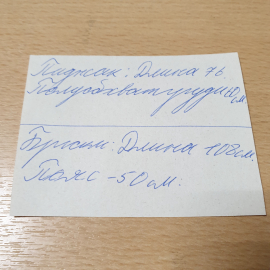 Пиджак: Длина 76.
Полуобхват груди 60 см
Брюки: Длина 108 см.
Пояс - 50 см.